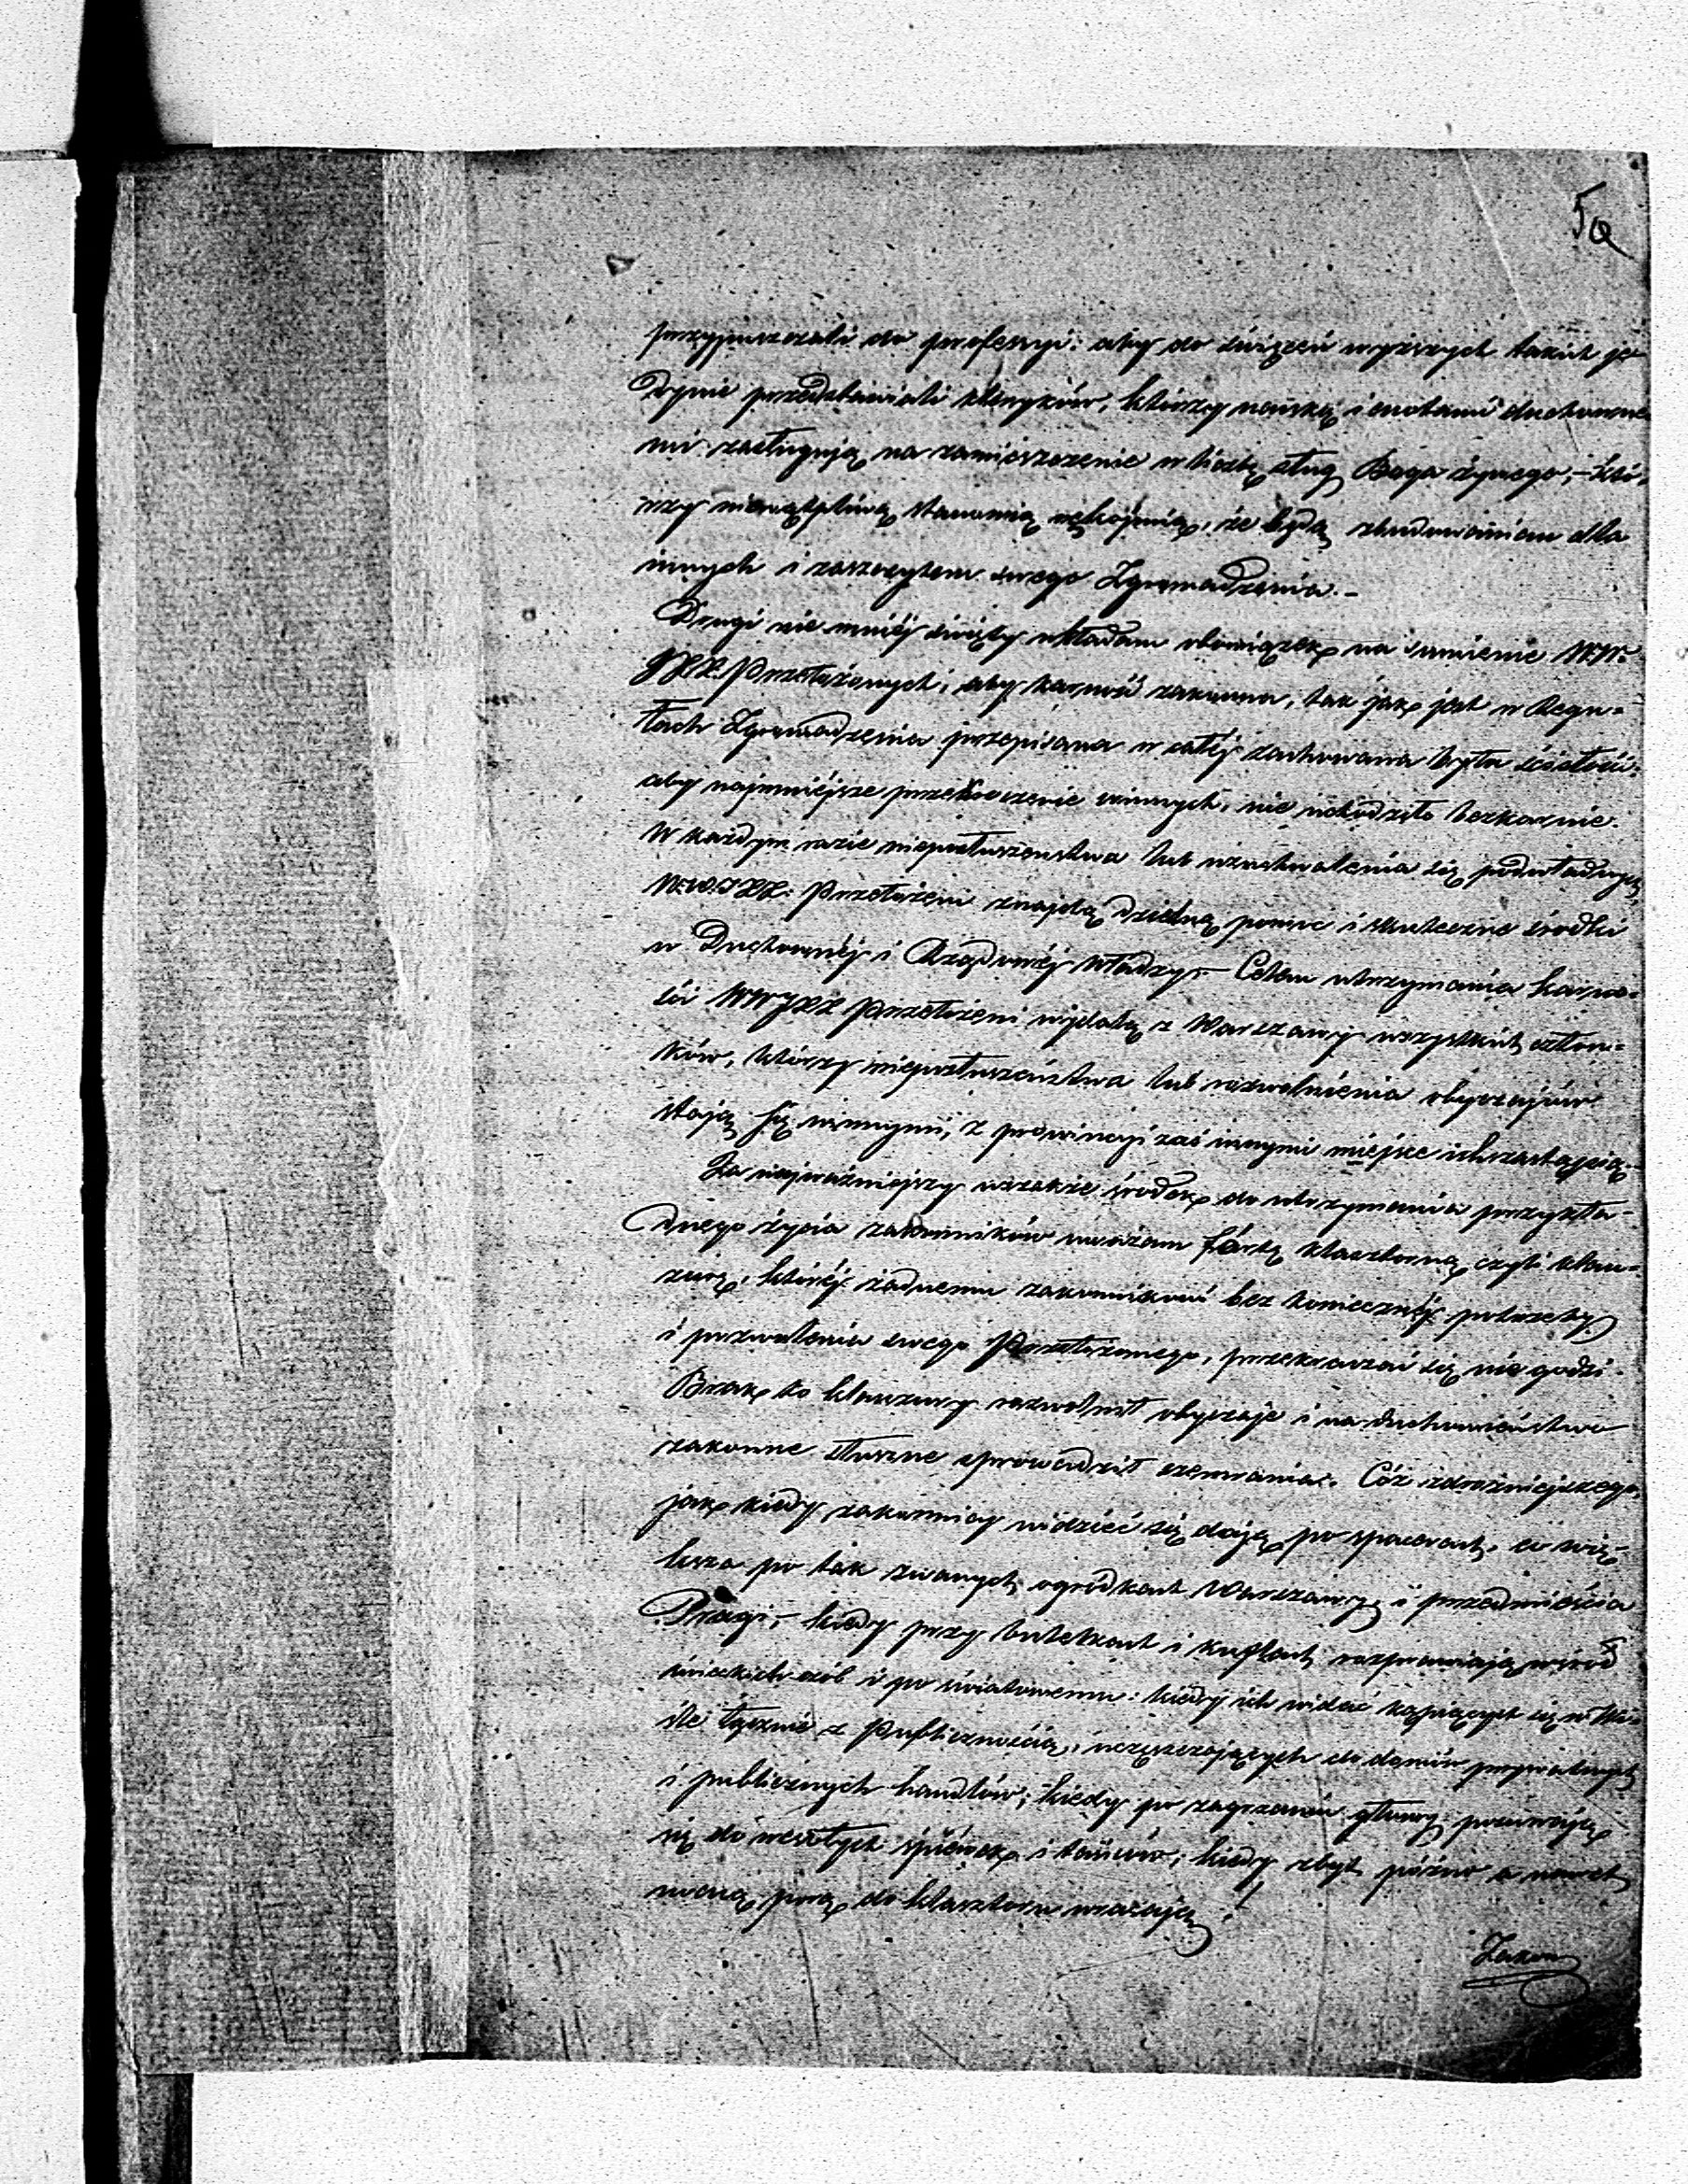 5a
przypuszczali do professyi: aby do święceń wyższych takich je-
dynie przedstawiali kleryków, którzy nauką i cnotami duchowne
mi zasługują na zamieszczenie w liczbę sług Boga żywego, – któ-
rzy niewątpliwą stanowią rękojmię, że będą zbudowaniem dla
innych i zaszczytem swego Zgromadzenia. –
Drugi nie mniéj święty wkładam obowiązek na sumienie W.W.
JXX. Przełożonych, aby karność zakonna, tak jak jest w Regu=
łach Zgromadzenia przepisana w całéj zachowana była ścisłości:
aby najmniéjsze przekroczenie winnych, nie uchodziło bezkarnie.
W każdym razie nieposłuszeństwa lub rozuchwalenia się podwładnych,
W.W.JXX. Przełożeni znajdą dzielną pomoc i skuteczne środki
w Duchownéj i Rządowéj władzy. – Celem utrzymania karno=
ści WWJXX Przełożeni wydalą z Warszawy wszystkich człon=
ków, którzy nieposłuszeństwa lub rozwolnienia obyczajów
stają się winnymi, z prowincyi zaś innymi miejsce ich zastąpią. –
Za najważniejszy wszakże środek do utrzymania przykła-
dnego życia zakonników uważam fórtę klasztorną czyli klau=
zurę, któréj żadnemu zakonnikowi bez koniecznéj potrzeby
i pozwolenia swego Przełożonego, przekraczać się nie godzi.
Brak to klauzury rozwolnił obyczaje i na duchowieństwo
zakonne słuszne sprowadził szemrania. Cóż zdrożniejszego,
jak kiedy zakonnicy widzieć się dają po spacerach, co wię-
ksza po tak zwanych ogródkach Warszawy i przedmieścia
Pragi, – kiedy przy butelkach i kuflach rozprawiają wśród
świeckich osób i po światowemu: kiedy ich widzieć kąpiących się w Wi=
śle łącznie z Publicznością, uczęszczających do domów prywatnych
i publicznych handlów; kiedy po zagrzaniu głowy porywają
się do wesołych śpiewek i tańców; kiedy zbyt późno a nawet
nocną porą do klasztoru wracają!
Zakon